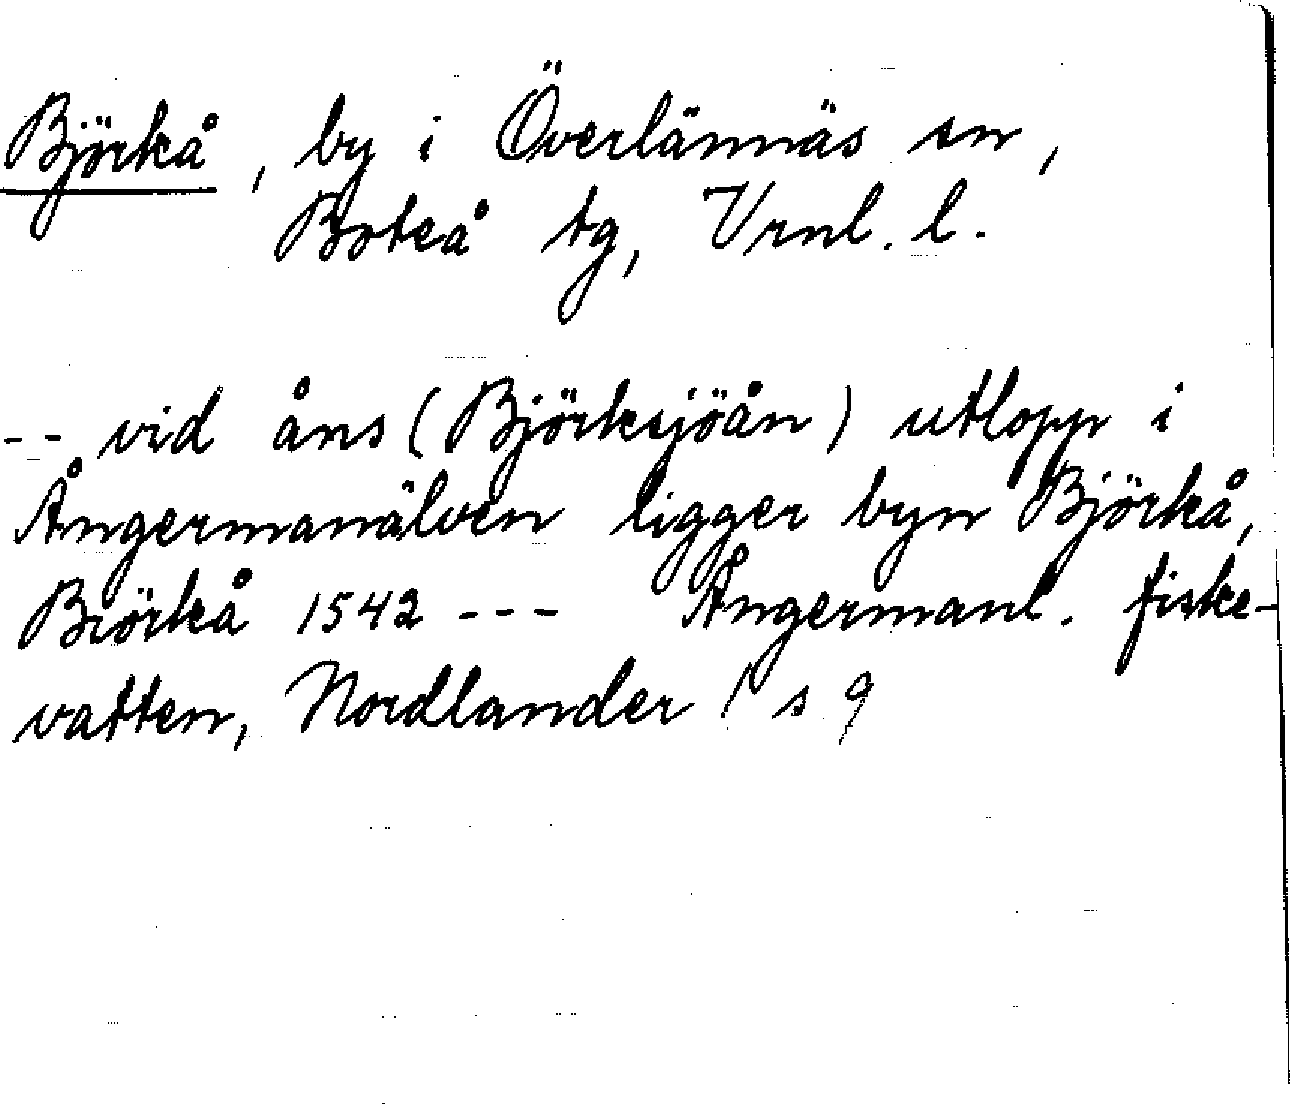 Björkå, by i Överlännäs sn,
Boteå tg, Vrnl. l.
-- vid åns (Björksjöån) utlopp i
Ångermanälven ligger byn Björkå,
Biörkå 1542 --- Ångermanl. fiske-
vatten, Nordlander / s 9